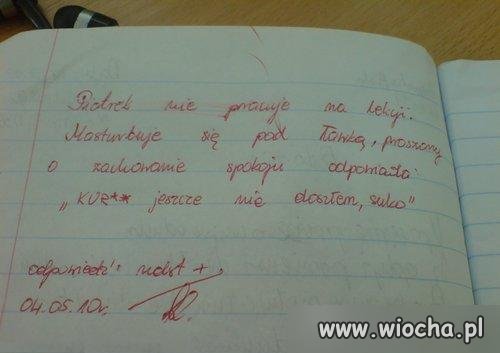 Piotrek nie pracuje na lekcji.
Masturbuje się pod ławką, proszony
o zachowanie spokoju odpowiada:
„KUR** jeszcze nie doszłem, suko"
odpowiedź: ndst +
04.05.10r.
www.wiocha.pl